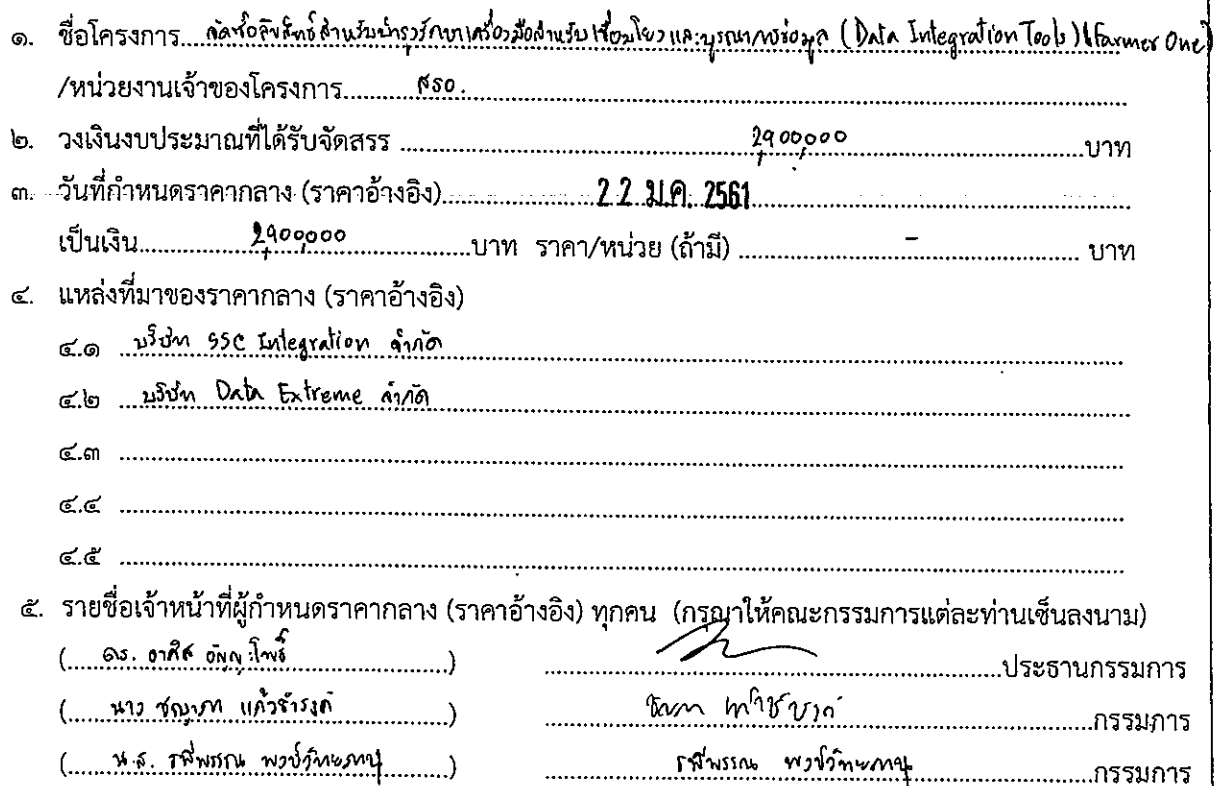 ๑. ชื่อโครงการ....จัดซื้อลิขสิทธิ์สำหรับบำรุงรักษาเครื่องมือสำหรับเชื่อมโยงและบูรณาการข้อมูล (Data Integration Tools) (Farmer One)
/หน่วยงานเจ้าของโครงการ............สรอ.
๒. วงเงินงบประมาณที่ได้รับจัดสรร ............ 2,900,000 ............บาท
๓. วันที่กำหนดราคากลาง (ราคาอ้างอิง)............ 22 ม.ค. 2561
เป็นเงิน............ 2,900,000 ............บาท ราคา/หน่วย (ถ้ามี) ............ - ............ บาท
๔. แหล่งที่มาของราคากลาง (ราคาอ้างอิง)
๔.๑ บริษัท SSC Integration จำกัด
๔.๒ บริษัท Data Extreme จำกัด
๔.๓ ............
๔.๔ ............
๔.๕ ............
๕. รายชื่อเจ้าหน้าที่ผู้กำหนดราคากลาง (ราคาอ้างอิง) ทุกคน (กรุณาให้คณะกรรมการแต่ละท่านเซ็นลงนาม)
( ดร. อาศิส อัญญะโพธิ์ ) ............ประธานกรรมการ
( นาง ชญาภา แก้วธำรงค์ ) ............กรรมการ
( น.ส. รพีพรรณ พงป์วิทยภานุ ) รพีพรรณ พงป์วิทยภานุ ............กรรมการ